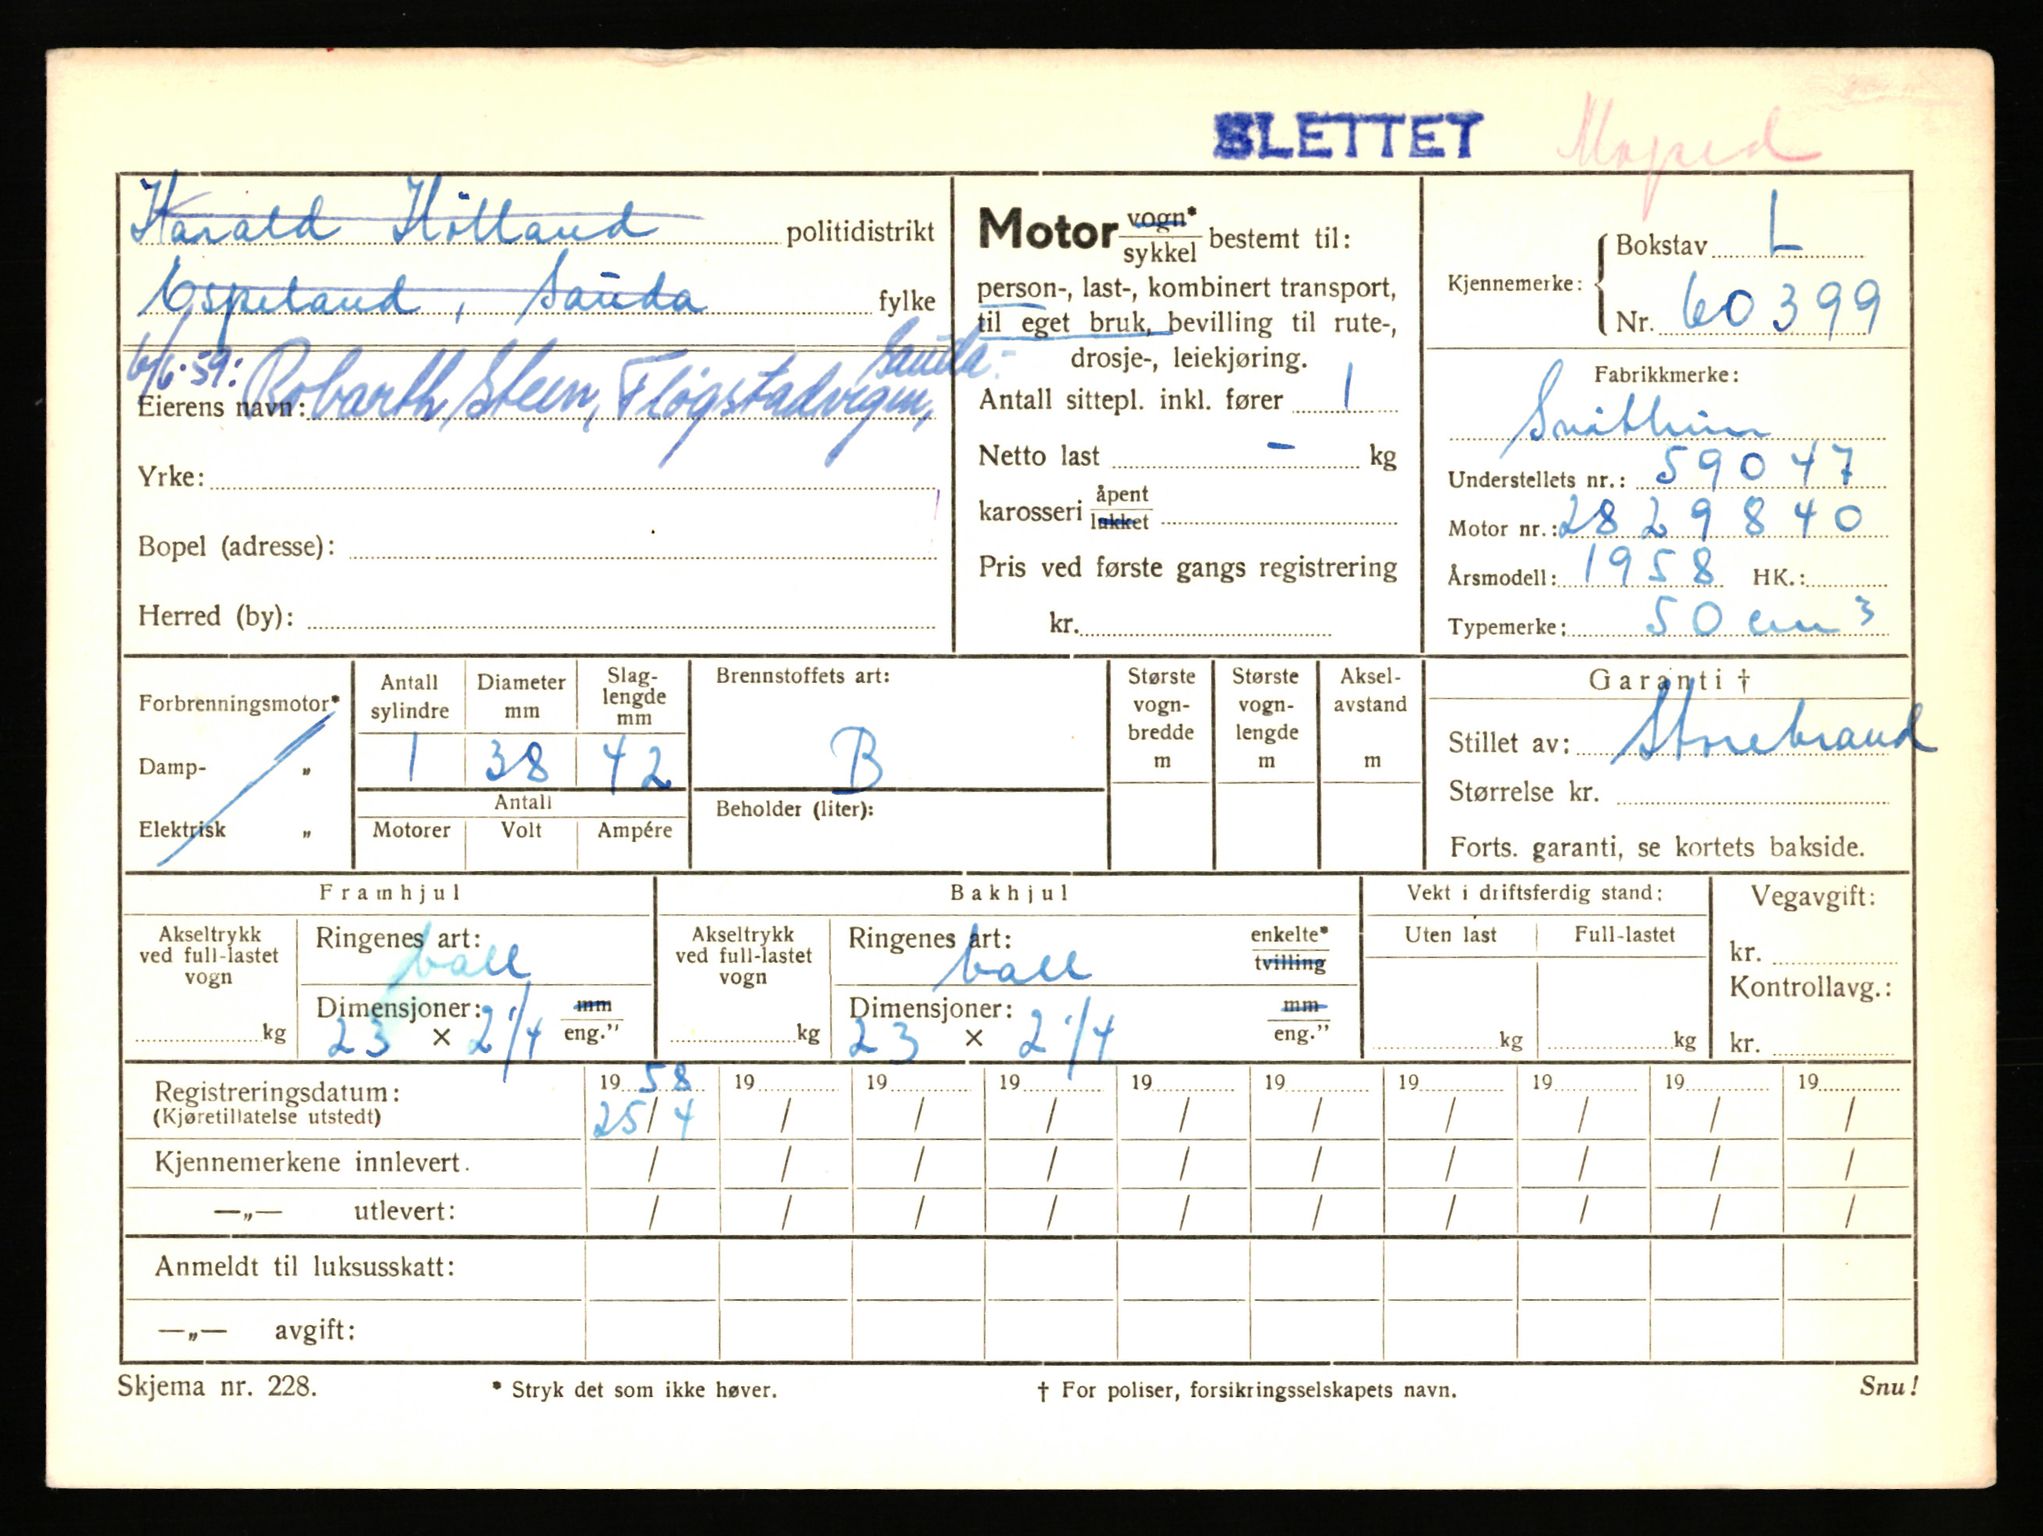 SLETTET Moped
Harald Hölland politidistrikt
Espeland, Sauda fylke
6/6-59: Robarth Steen, Fløgstadvegen, Sauda.
Eierens navn:
Yrke:
Bopel (adresse):
Herred (by):
Motor vogn* / sykkel bestemt til:
person-, last-, kombinert transport,
til eget bruk, bevilling til rute-,
drosje-, leiekjøring.
Antall sittepl. inkl. fører 1
Netto last - kg
karosseri åpent / lukket
Pris ved første gangs registrering
kr.
Kjennemerke: Bokstav L
Nr. 60399
Fabrikkmerke:
Understellets nr.: 59047
Motor nr.: 2829840
Årsmodell: 1958 HK.:
Typemerke: 50 cm3
Forbrenningsmotor*
Damp- „
Elektrisk „
Antall sylindre 1
Diameter mm 38
Slag-lengde mm 42
Antall
Motorer Volt Ampére
Brennstoffets art:
B
Beholder (liter):
Største vogn-bredde m
Største vogn-lengde m
Aksel-avstand m
Garanti †
Stillet av: Storebrand
Størrelse kr.
Forts. garanti, se kortets bakside.
Framhjul
Akseltrykk ved full-lastet vogn
kg
Ringenes art: ball
Dimensjoner: mm
23 × 2 1/4 eng."
Bakhjul
Akseltrykk ved full-lastet vogn
kg
Ringenes art: ball enkelte* / tvilling
Dimensjoner: mm
23 × 2 1/4 eng."
Vekt i driftsferdig stand:
Uten last Full-lastet
kg kg
Vegavgift:
kr.
Kontrollavg.:
kr.
Registreringsdatum: 19 58 19 19 19 19 19 19 19 19 19
(Kjøretillatelse utstedt) 25/4 / / / / / / / / /
Kjennemerkene innlevert. / / / / / / / / / /
—„— utlevert: / / / / / / / / / /
Anmeldt til luksusskatt:
—„— avgift:
Skjema nr. 228. * Stryk det som ikke høver. † For poliser, forsikringsselskapets navn. Snu!